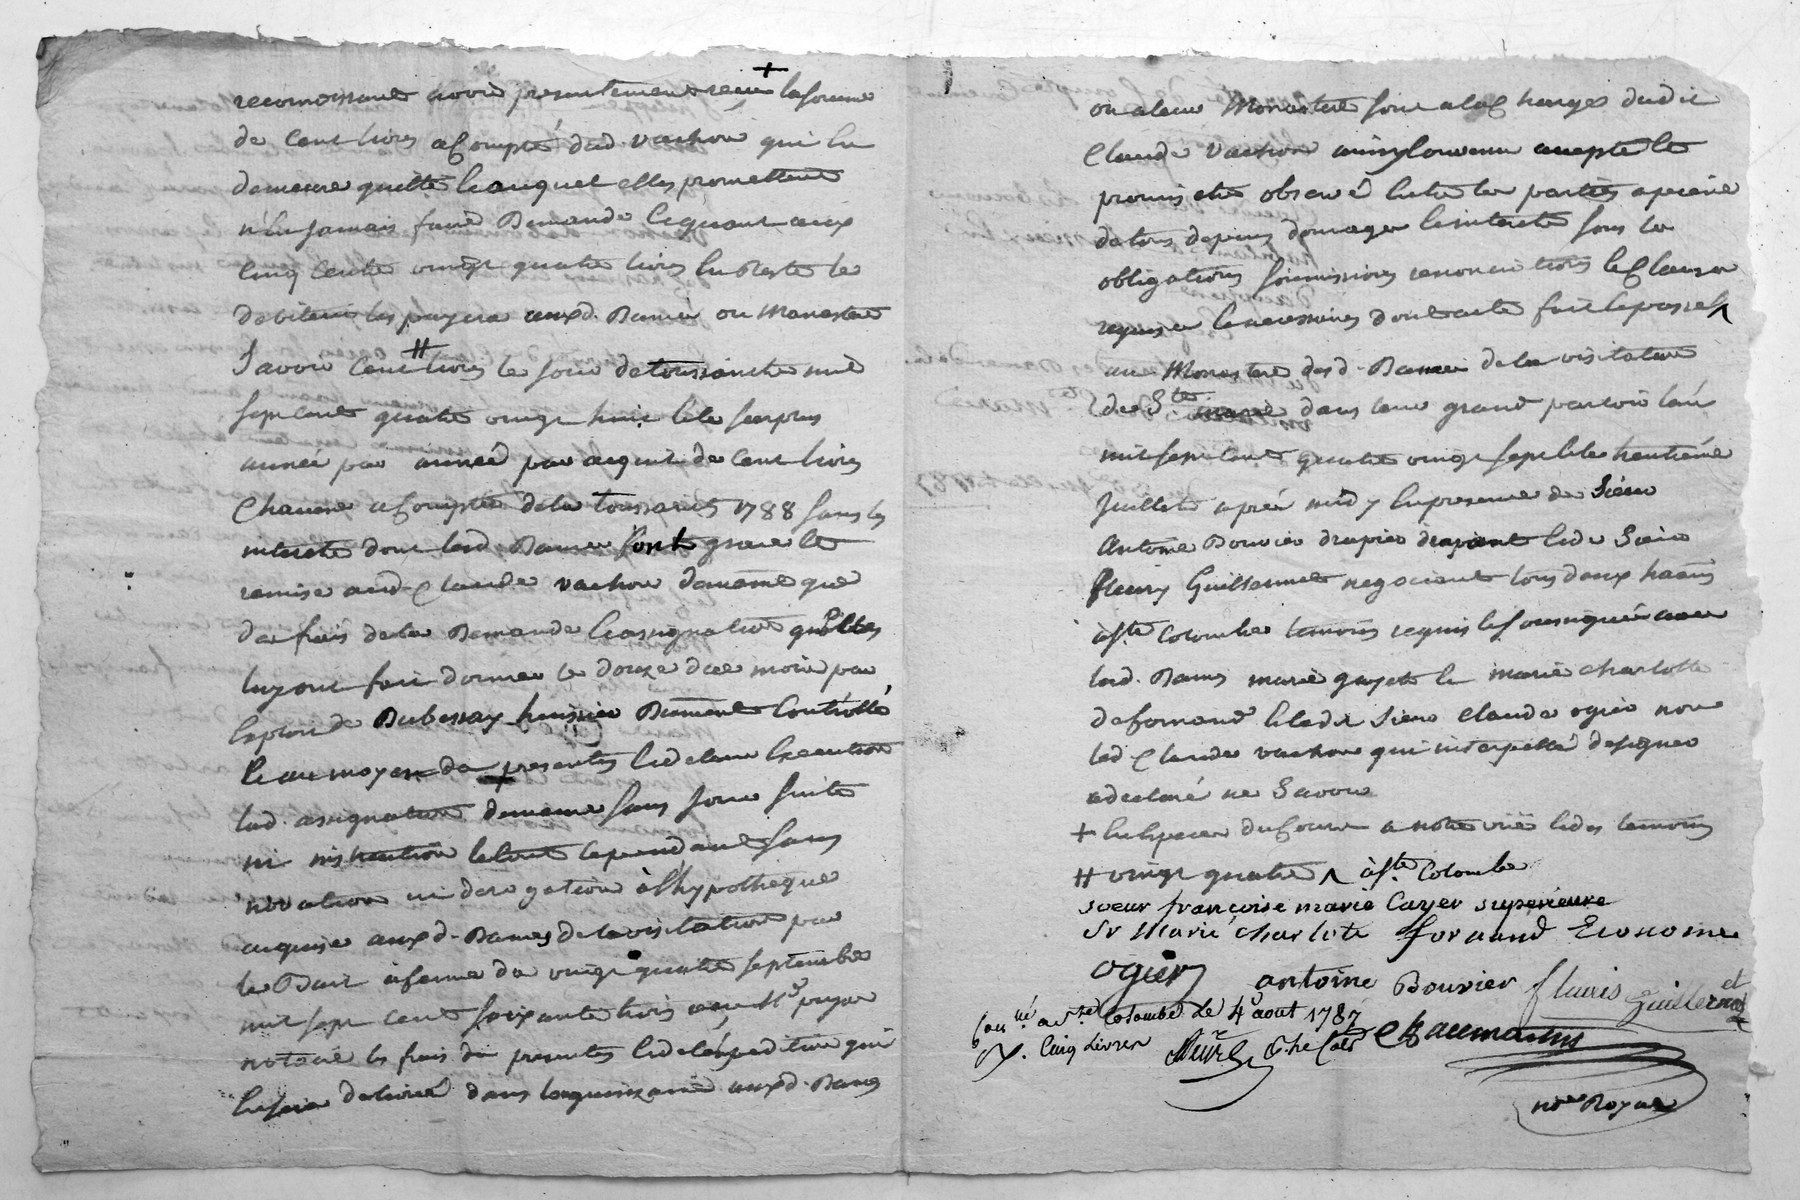 reconnoissent avoir presentement receu + la somme
de cent livres acompte dud. vachon qui en
demeure quitte lanquel elles promettent
n'en jamais faire Demande Et quant aux
cinq cents vingt quatre livres En Reste le
debiteur les payera auxd. Dames ou Monastere
Savoir Cent # livres le jour de toussaints mil
sept cent quatre vingt huit Et le surplus
année par année par argent de cent livres
Chacune a Compter de la toussaints 1788 sans les
interets dont lesd. Dames font grace et
remise aud. Claude vachon de meme que
des frais de la Demande Et assignation qu'Elles
luy ont fait donner le douze du mois par
Exploit de Dubessay huissier Dument Controllé
Et au moyen des presentes Et de leur Execution
lad. assignation demeure sans Jour suite
ni instruction le tout cependant sans
novation ni derogation à l'hypotheque
acquise auxd. Dames de la visitation par
le Bail à ferme du vingt quatre septembre
mil sept cent soixante trois reçu Me
notaire les frais des presentes Et de l'expedition qui
En sera delivré dans la quinzaine auxd. Dames
ou a leur Monastere sont a la Charge dudit
Claude vachon ainsy convenu accepté et
promis etre observé Entre les parties a peine
de tous depens domages Et interets sous les
obligations soumissions renonciations Et Clauses
requises Et necessaires dont acte fait Et passé ʌ
au Monastere desd. Dames de la visitation
de Ste dans leur grand parloir l'an
mil sept cent quatre vingt sept Et le trentième
Juillet après midy En presence de Sieur
Antoine Bouvier drapier drapant Et de Sieur
fleury Guillermet negociant tous deux habts
à Ste Colombe temoins requis Et soussignés avec
lesd. Dames marie Et marie charlotte
de fornand Et led. Sieur Claude ogier non
led. Claude vachon qui interpellé de signer
a declaré ne Savoir
+ En Especes du Cours a notre vüe Et des temoins
# vingt quatre ʌ à Ste Colombe
soeur françoise marie Cayer superieure
Sr Marie charlote fornand Econome
ogier antoine Bouvier fleuris Guillermet
Con.lé a Ste Colombe le 4 aout 1787
R. Cinq Livres
nore Royal